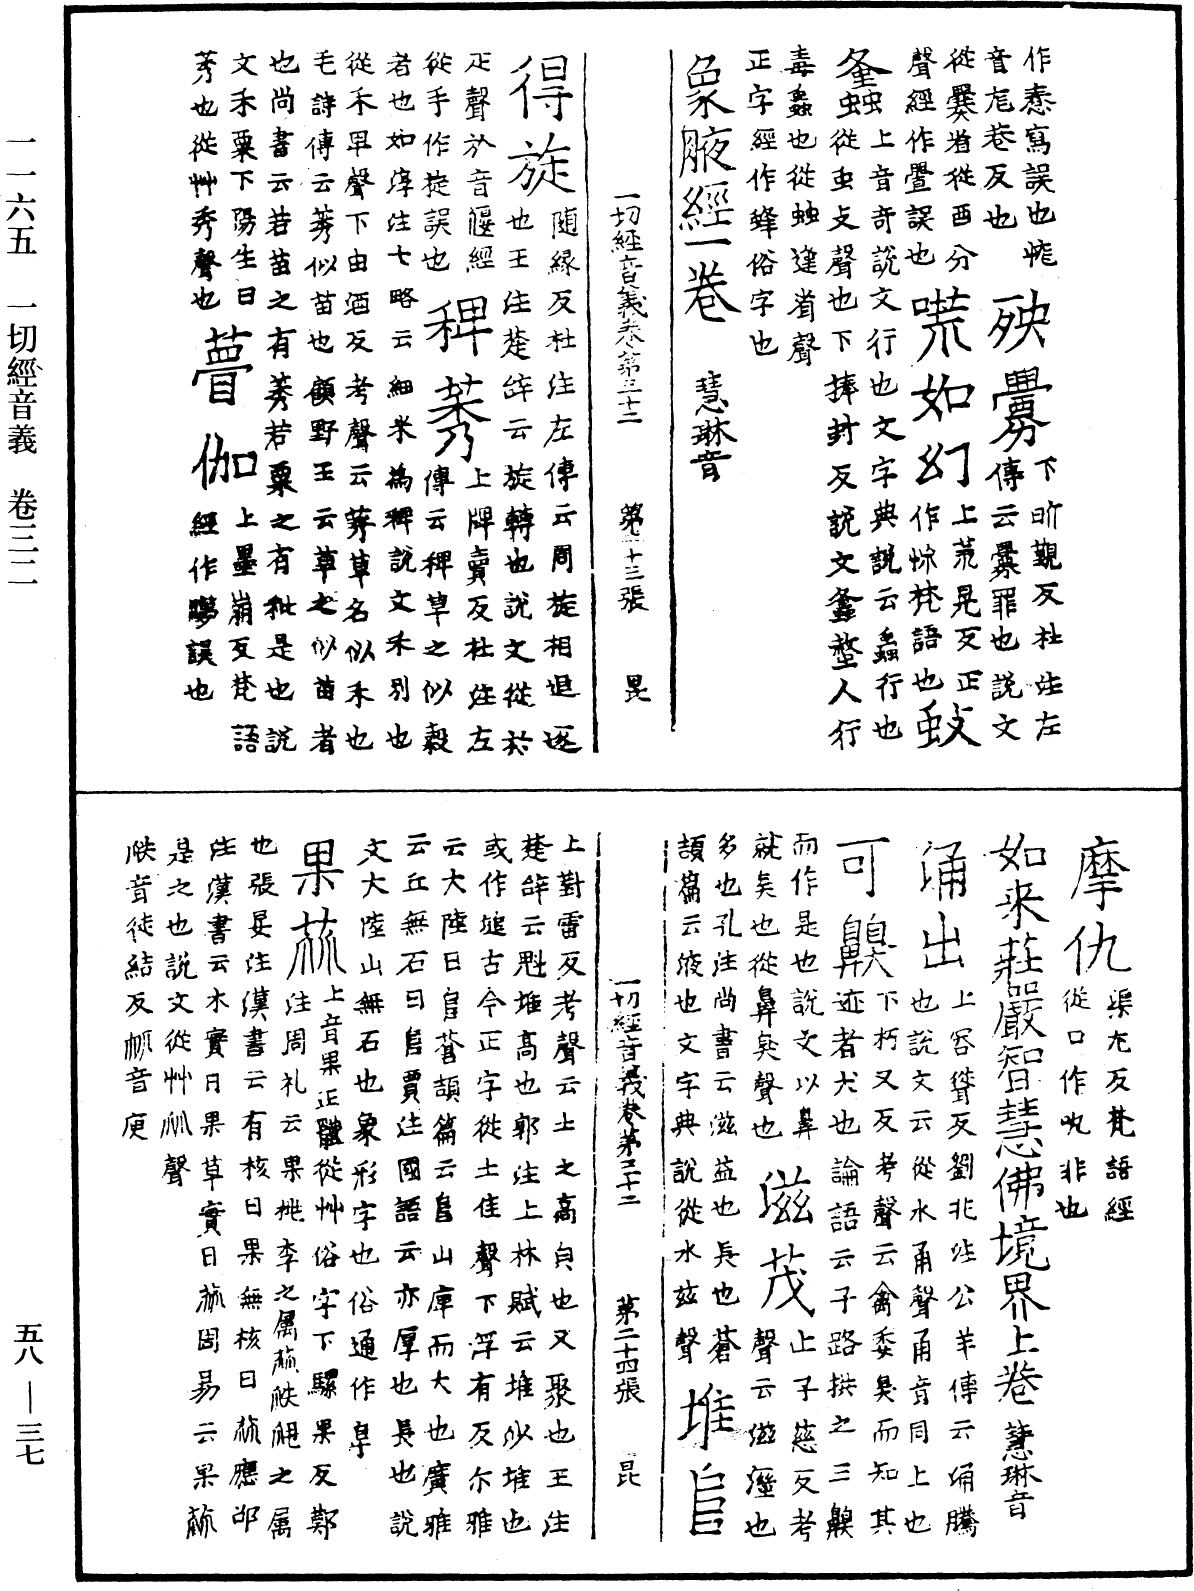 一一六五 一切經音義 卷三二
作憃寫誤也帷
音尨巷反也 殃釁 下昕覲反杜注左
從爨省從酉分 傳云釁罪也說文
聲經作舋誤也 㗬如幻 上荒晃反正
作㤺梵語也 蚑
蚤 上音奇說文行也文字典說云蟲行也
蟲 從虫支聲也下捧封反說文螽螫人行
毒蟲也從䖵逢省聲
正字經作蜂俗字也
象腋經一卷 慧琳音
一切經音義卷第三十二 第二十三張 昆
得旋 隨緣反杜注左傳云周旋相追逐
也王注楚辞云旋轉也說文從㫃
疋聲㫃音偃經
從手作㨹誤也 稗莠 上牌賣反杜注左
傳云稗草之似穀
者也如淳注七略云細米為稗說文禾別也
從禾卑聲下由酒反考聲云莠草名似禾也
毛詩傳云莠似苗也顧野王云草之似苗者
也尚書云若苗之有莠若粟之有秕是也說
文禾粟下陽生曰
莠也從艸秀聲也 瞢伽 上墨崩反梵語
經作㝱誤也
摩仇 渠尤反梵語經
從口作㕤非也
如来莊嚴智慧佛境界上卷 慧琳音
涌出 上容聳反劉兆注公羊傳云涌騰
也說文云從水甬聲甬音同上也
可齅 下朽又反考聲云禽委臭而知其
迹者犬也論語云子路拱之三齅
而作是也說文以鼻
就臭也從鼻臭聲也 滋茂 上子慈反考
聲云滋溼也
多也孔注尚書云滋益也長也蒼
頡篇云液也文字典說從水兹聲 堆𨸏
上對雷反考聲云土之高皃也又聚也王注
楚辞云魁堆高也郭注上林賦云堆沙堆也
或作塠古今正字從土隹聲下浮有反尒雅
云大陸曰𨸏蒼頡篇云𨸏山庳而大也廣雅
云丘無石曰𨸏賈注國語云亦厚也長也說
文大陸山無石也象形字也俗通作阜
果蓏 上音果正體從艸俗字下騾果反鄭
注周礼云果桃李之属蓏瓞𤬏之属
也張晏注漢書云有核曰果無核曰蓏應邵
注漢書云木實曰果草實曰蓏周易云果蓏
是之也說文從艸㼌聲
瓞音徒結反㼌音庾
一切經音義卷第三十二 第二十四張 昆
五八—三七